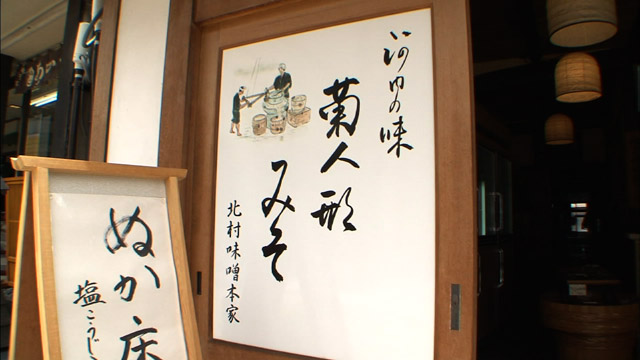 河内の味
菊人形
みそ
北村味噌本家
ぬか床
塩こうじ